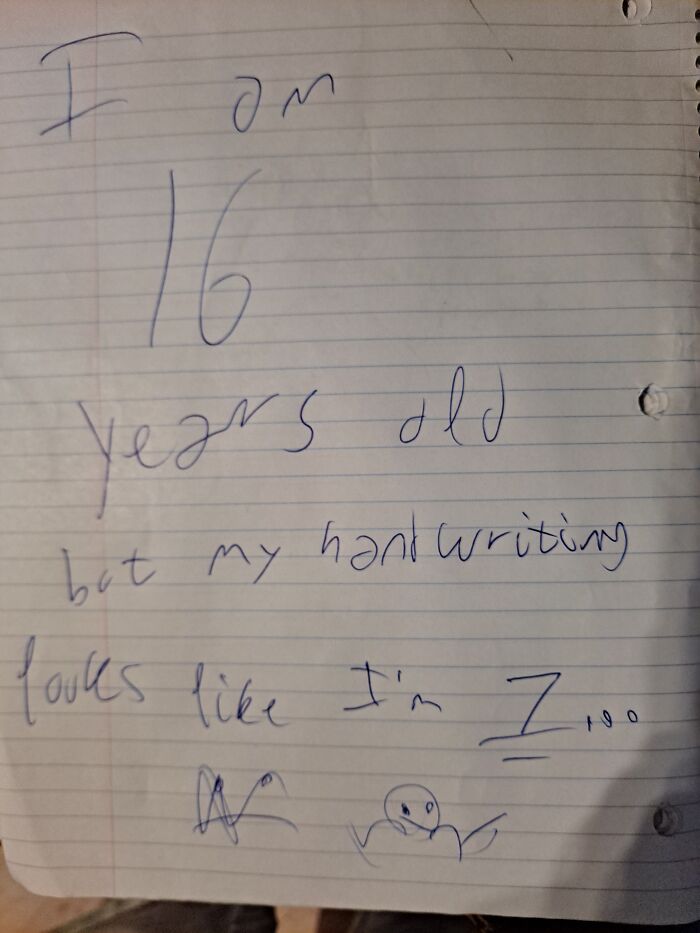 I am
16
years old
but my handwriting
looks like I'm 7...